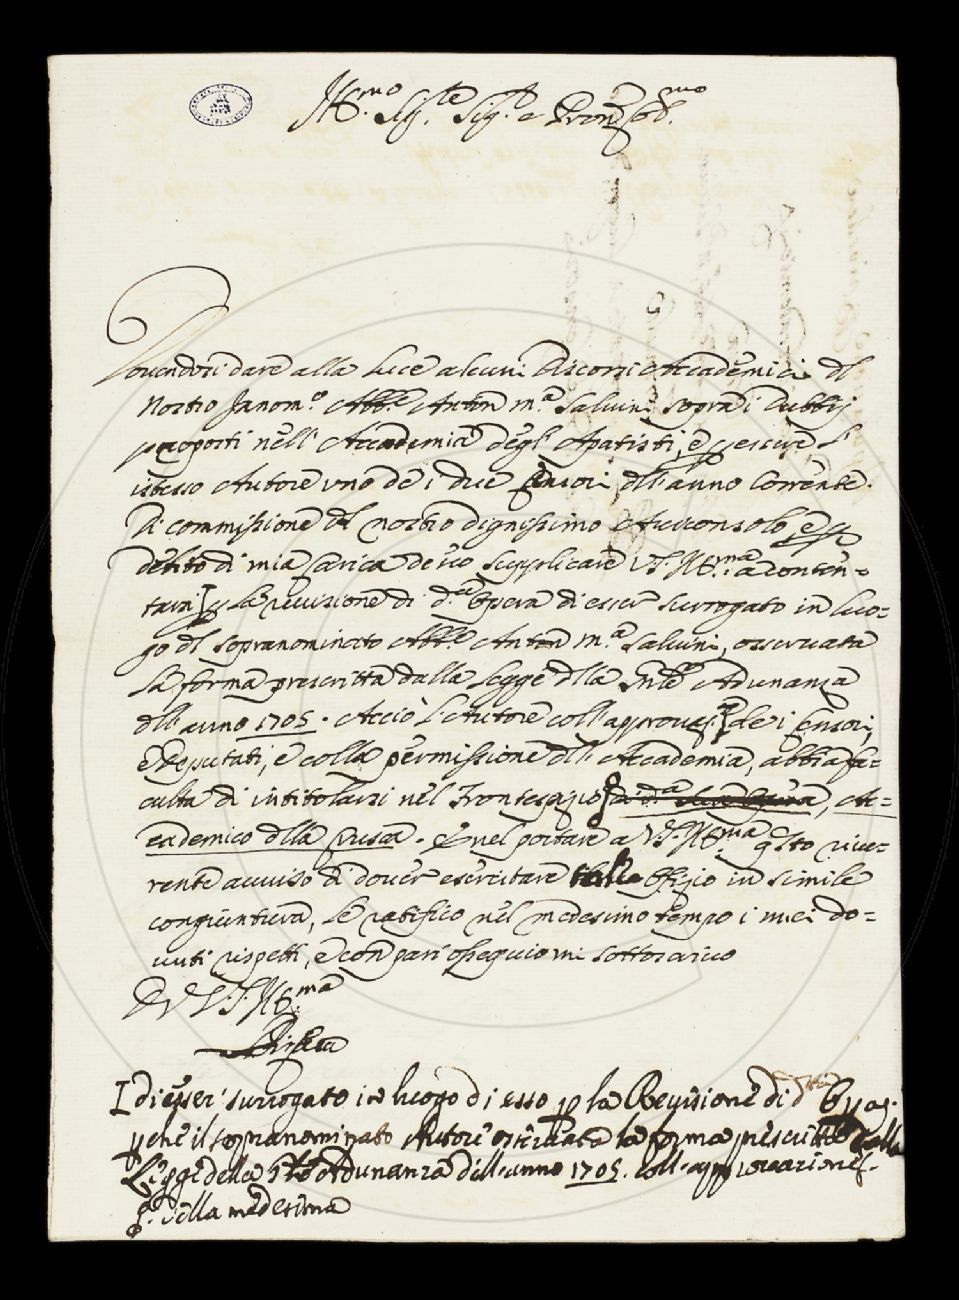 Ill.mo Sig.re Sig.r e Pron. Col.mo
Dovendosi dare alla Luce alcuni Discorsi Accademici del
Nostro Abb.e Anton M.a Salvini sopra i Dubbij
proposti nell' Accademia degl' Apatisti, e p essere l'
istesso Autore uno de i due Censori dell' anno Corrente.
Di commissione del nostro dignissimo Arciconsolo, e p
debito di mia carica devo supplicare V.S. Ill.ma a conten=
tarsi p la revisione di d.a Opera di esser surrogato in luo=
go del sopranominato Abb.e Anton M.a Salvini, osservata
la forma prescritta dalla Legge della Adunanza
dell' anno 1705. Acciò l'Autore coll' approvaz. de i Censori,
e Deputati, e colla permissione dell' Accademia, abbia fa=
culta di intitolarsi nel Frontespizio di d.a Opera, Ac=
cademico della Crusca. E nel portare a V.S. Ill.ma qsto rive=
rente avviso di dover esercitare Offizio in simile
congiuntura, Le ratifico nel medesimo tempo i miei do=
vuti rispetti, e con pari ossequio mi sottoscrivo
D V.S. Ill.ma
I di esser surrogato in luogo di esso p la Revisione di d.tta Opa.
p che il sopranominato Autore osservata la forma prescritta dalla
Legge della Adunanza dell' anno 1705. coll' approvazione
della medesima